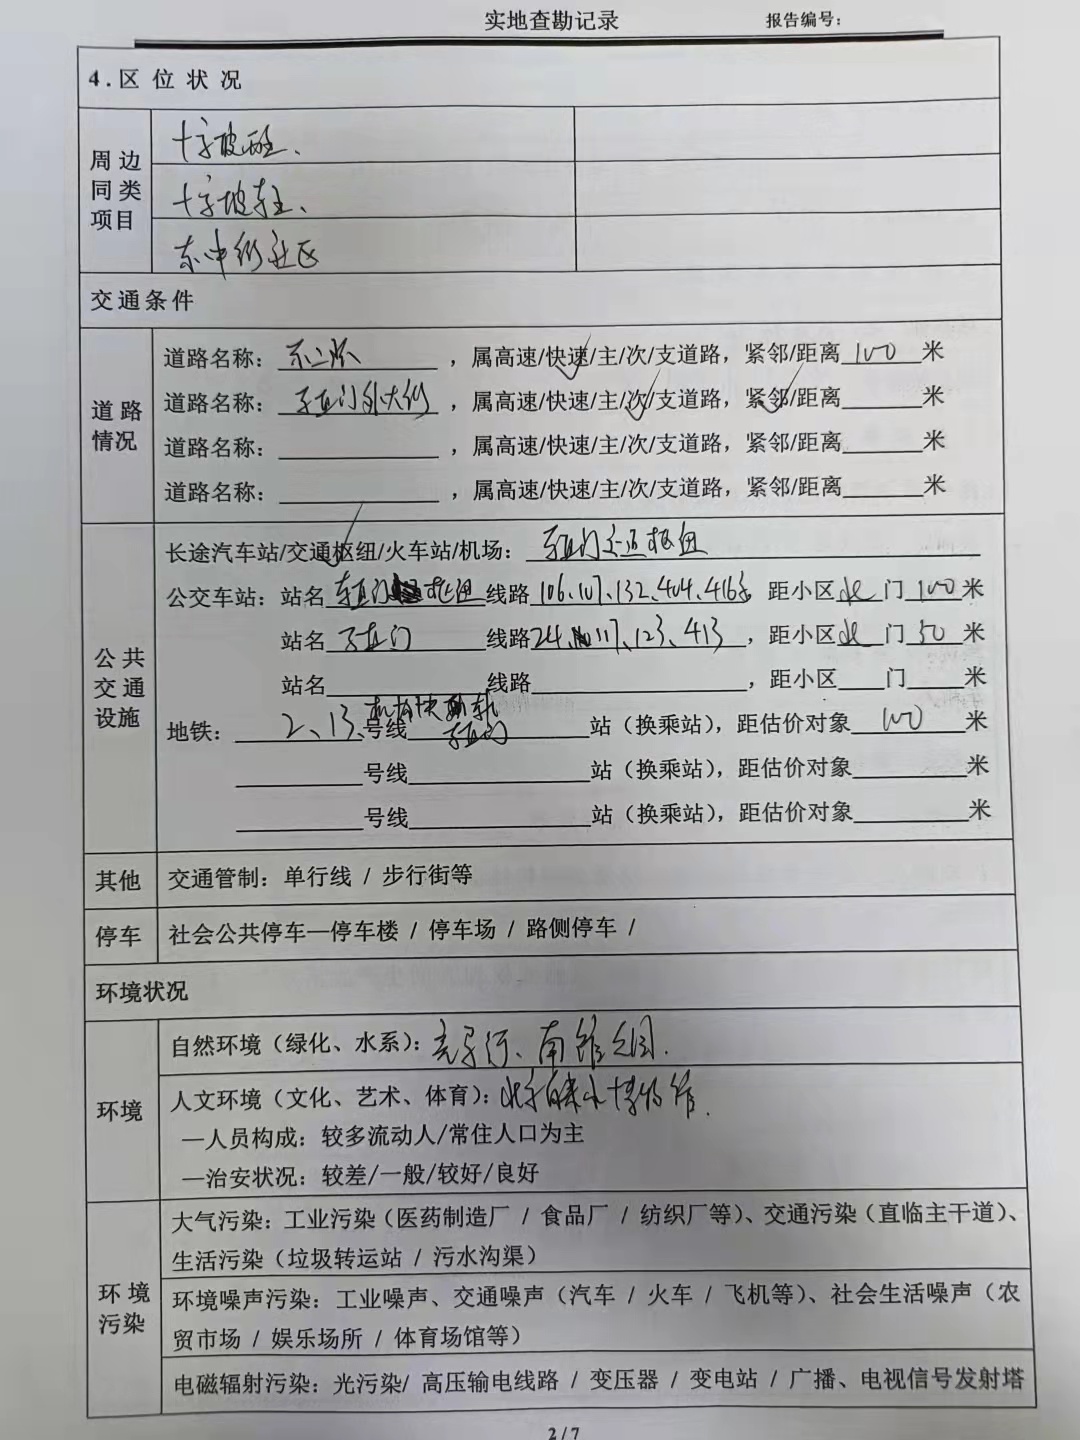 实地查勘记录 报告编号：
4.区位状况
周边同类项目
十字坡西里、
十字坡东里、
东中街社区
交通条件
道路情况
道路名称：东二环，属高速/快速/主/次/支道路，紧邻/距离100米
道路名称：东直门外大街，属高速/快速/主/次/支道路，紧邻/距离______米
道路名称：__________，属高速/快速/主/次/支道路，紧邻/距离______米
道路名称：__________，属高速/快速/主/次/支道路，紧邻/距离______米
公共交通设施
长途汽车站/交通枢纽/火车站/机场：东直门交通枢纽
公交车站：站名东直门枢纽线路106、107、132、404、416等，距小区北门100米
站名东直门线路24、117、123、413，距小区北门50米
站名__________线路__________，距小区____门____米
地铁：2、13、号线机场快轨东直门站（换乘站），距估价对象100米
________号线__________站（换乘站），距估价对象________米
________号线__________站（换乘站），距估价对象________米
其他 交通管制：单行线 / 步行街等
停车 社会公共停车—停车楼 / 停车场 / 路侧停车 /
环境状况
环境
自然环境（绿化、水系）：亮马河、南馆公园.
人文环境（文化、艺术、体育）：北京自来水博物馆.
—人员构成：较多流动人/常住人口为主
—治安状况：较差/一般/较好/良好
环境污染
大气污染：工业污染（医药制造厂 / 食品厂 / 纺织厂等）、交通污染（直临主干道）、
生活污染（垃圾转运站 / 污水沟渠）
环境噪声污染：工业噪声、交通噪声（汽车 / 火车 / 飞机等）、社会生活噪声（农
贸市场 / 娱乐场所 / 体育场馆等）
电磁辐射污染：光污染/ 高压输电线路 / 变压器 / 变电站 / 广播、电视信号发射塔
2 / 7